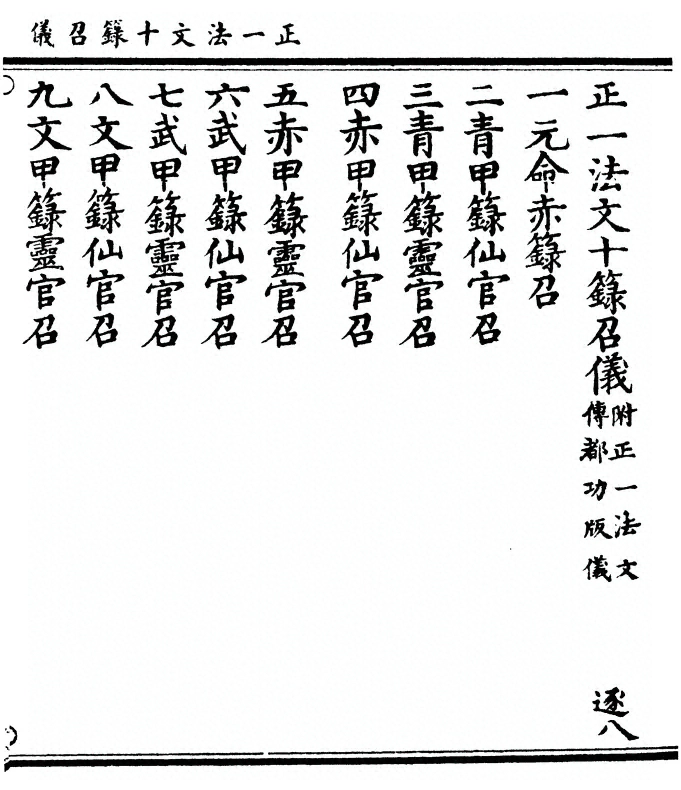 正一法文十籙召儀
正一法文十籙召儀 附正一法文傳都功版儀 逐八
一元命赤籙召
二青甲籙仙官召
三青甲籙靈官召
四赤甲籙仙官召
五赤甲籙靈官召
六武甲籙仙官召
七武甲籙靈官召
八文甲籙仙官召
九文甲籙靈官召